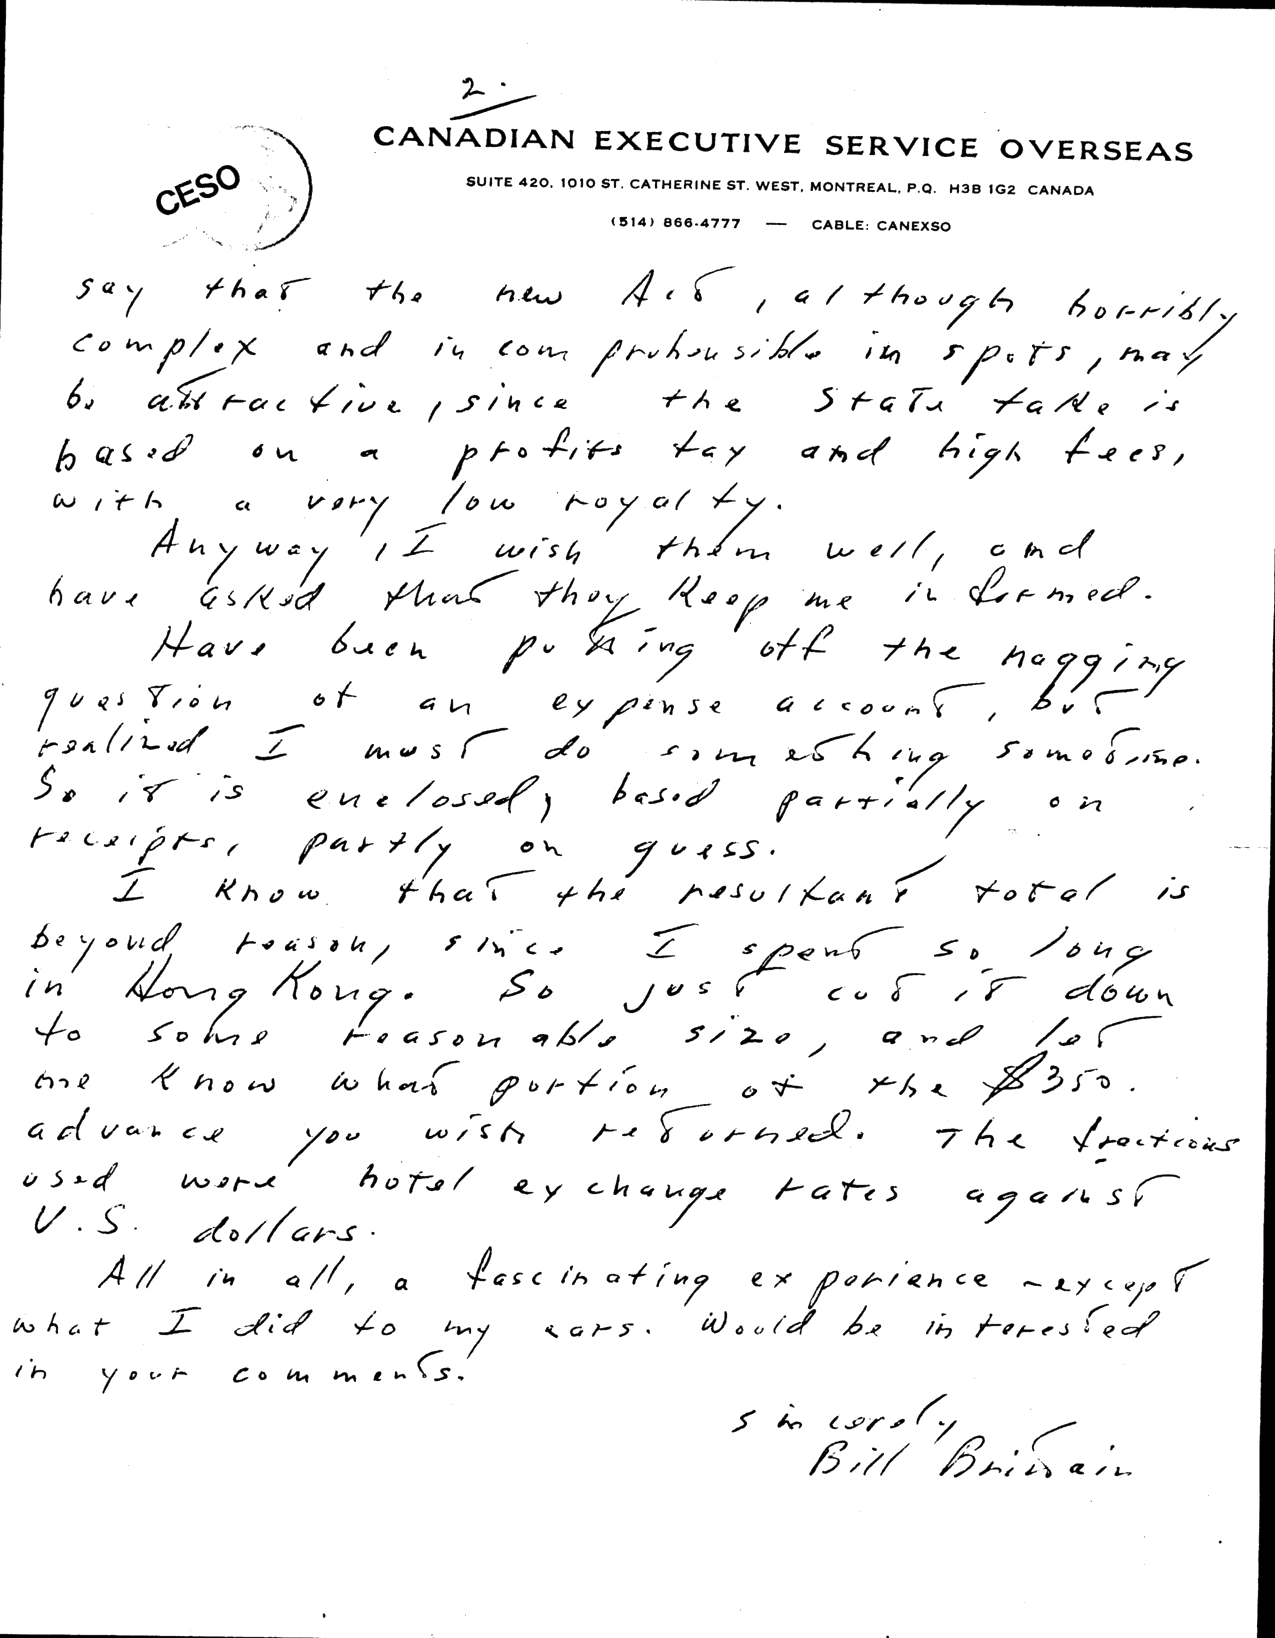 2.
CANADIAN EXECUTIVE SERVICE OVERSEAS
CESO
SUITE 420, 1010 ST. CATHERINE ST. WEST, MONTREAL, P.Q. H3B 1G2 CANADA
(514) 866-4777 — CABLE: CANEXSO
say that the new Act, although horribly
complex and incomprehensible in spots, may
be attractive, since the State take is
based on a profits tax and high fees,
with a very low royalty.
Anyway, I wish them well, and
have asked that they keep me informed.
Have been putting off the nagging
question of an expense account, but
realized I must do something sometime.
So it is enclosed, based partially on
receipts, partly on guess.
I know that the resultant total is
beyond reason, since I spent so long
in Hong Kong. So just cut it down
to some reasonable size, and let
me know what portion of the $350.
advance you wish returned. The fractions
used were hotel exchange rates against
U.S. dollars.
All in all, a fascinating experience - except
what I did to my ears. Would be interested
in your comments.
Sincerely
Bill Brittain